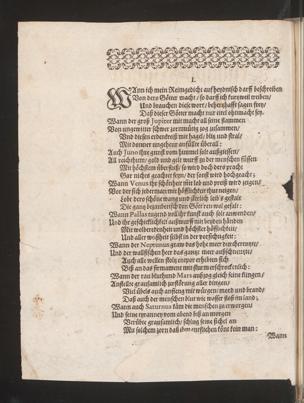 I.
WAnn ich mein Reimgedicht auf heydnisch darff beschreiben
Von dero Götter macht / so darff ich kurzweil treiben /
Und brauchen diese wort / behernhafft sagen frey /
Daß dieser Götter macht nur eitel ohnmacht sey.
Wann der groß Jupiter mit macht all seine flammen
Von ungewitter schwer zornmütig zog zusammen /
Und diesen erdenkreiß mit hagel / blitz und stral /
Mit donner ungeheur anfüllte überall :
Auch Juno ihre gunst vom himmel solt außgiessen /
All reichthum / gold und gelt wurff zu der menschen füssen
Mit höchstem überfluß / so wird doch der pracht
Gar nichts geachtet seyn / der sonst wird hoch geacht ;
Wann Venus ihr schönheit mit lob und preiß wird zeigen /
Vor der sich jedermann mit höfflichkeit thut neigen /
Lobt dero schöne wang und zierlich leibs gestalt
Die gantz bezauberisch den Göttern wol gefalt :
Wann Pallas tugend voll ihr kunst auch solt anwenden /
Und ihr geschicklichkeit außwürff mit beyden händen
Mit wolberedenheit und höchster höfflichkeit /
Und aller weißheit selbst in der vortrefligkeit :
Wann der Neptunus graw das hohe meer durchrennte /
Und der wallfischen heer das gantze meer aufschreinte /
Auch alle wellen stoltz empor erheben solt
Biß an das firmament mit sturm erschrockenlich :
Wann der rau bluthund Mars außzög gleich seine klingen /
Anstellte grausamlich zerstörung aller dingen /
Viel übels auch anfieng mit würgen / mord und brand /
Daß auch der menschen blut wie wasser floß im land ;
Wann auch Saturnus käm die menschen zu erwörgen /
Und seine tyranney vom abend biß an morgen
Verübte grausamlich / schlüg seine sichel an
Mit solchem zorn daß ihm entfliehen könt kein man :
Wann